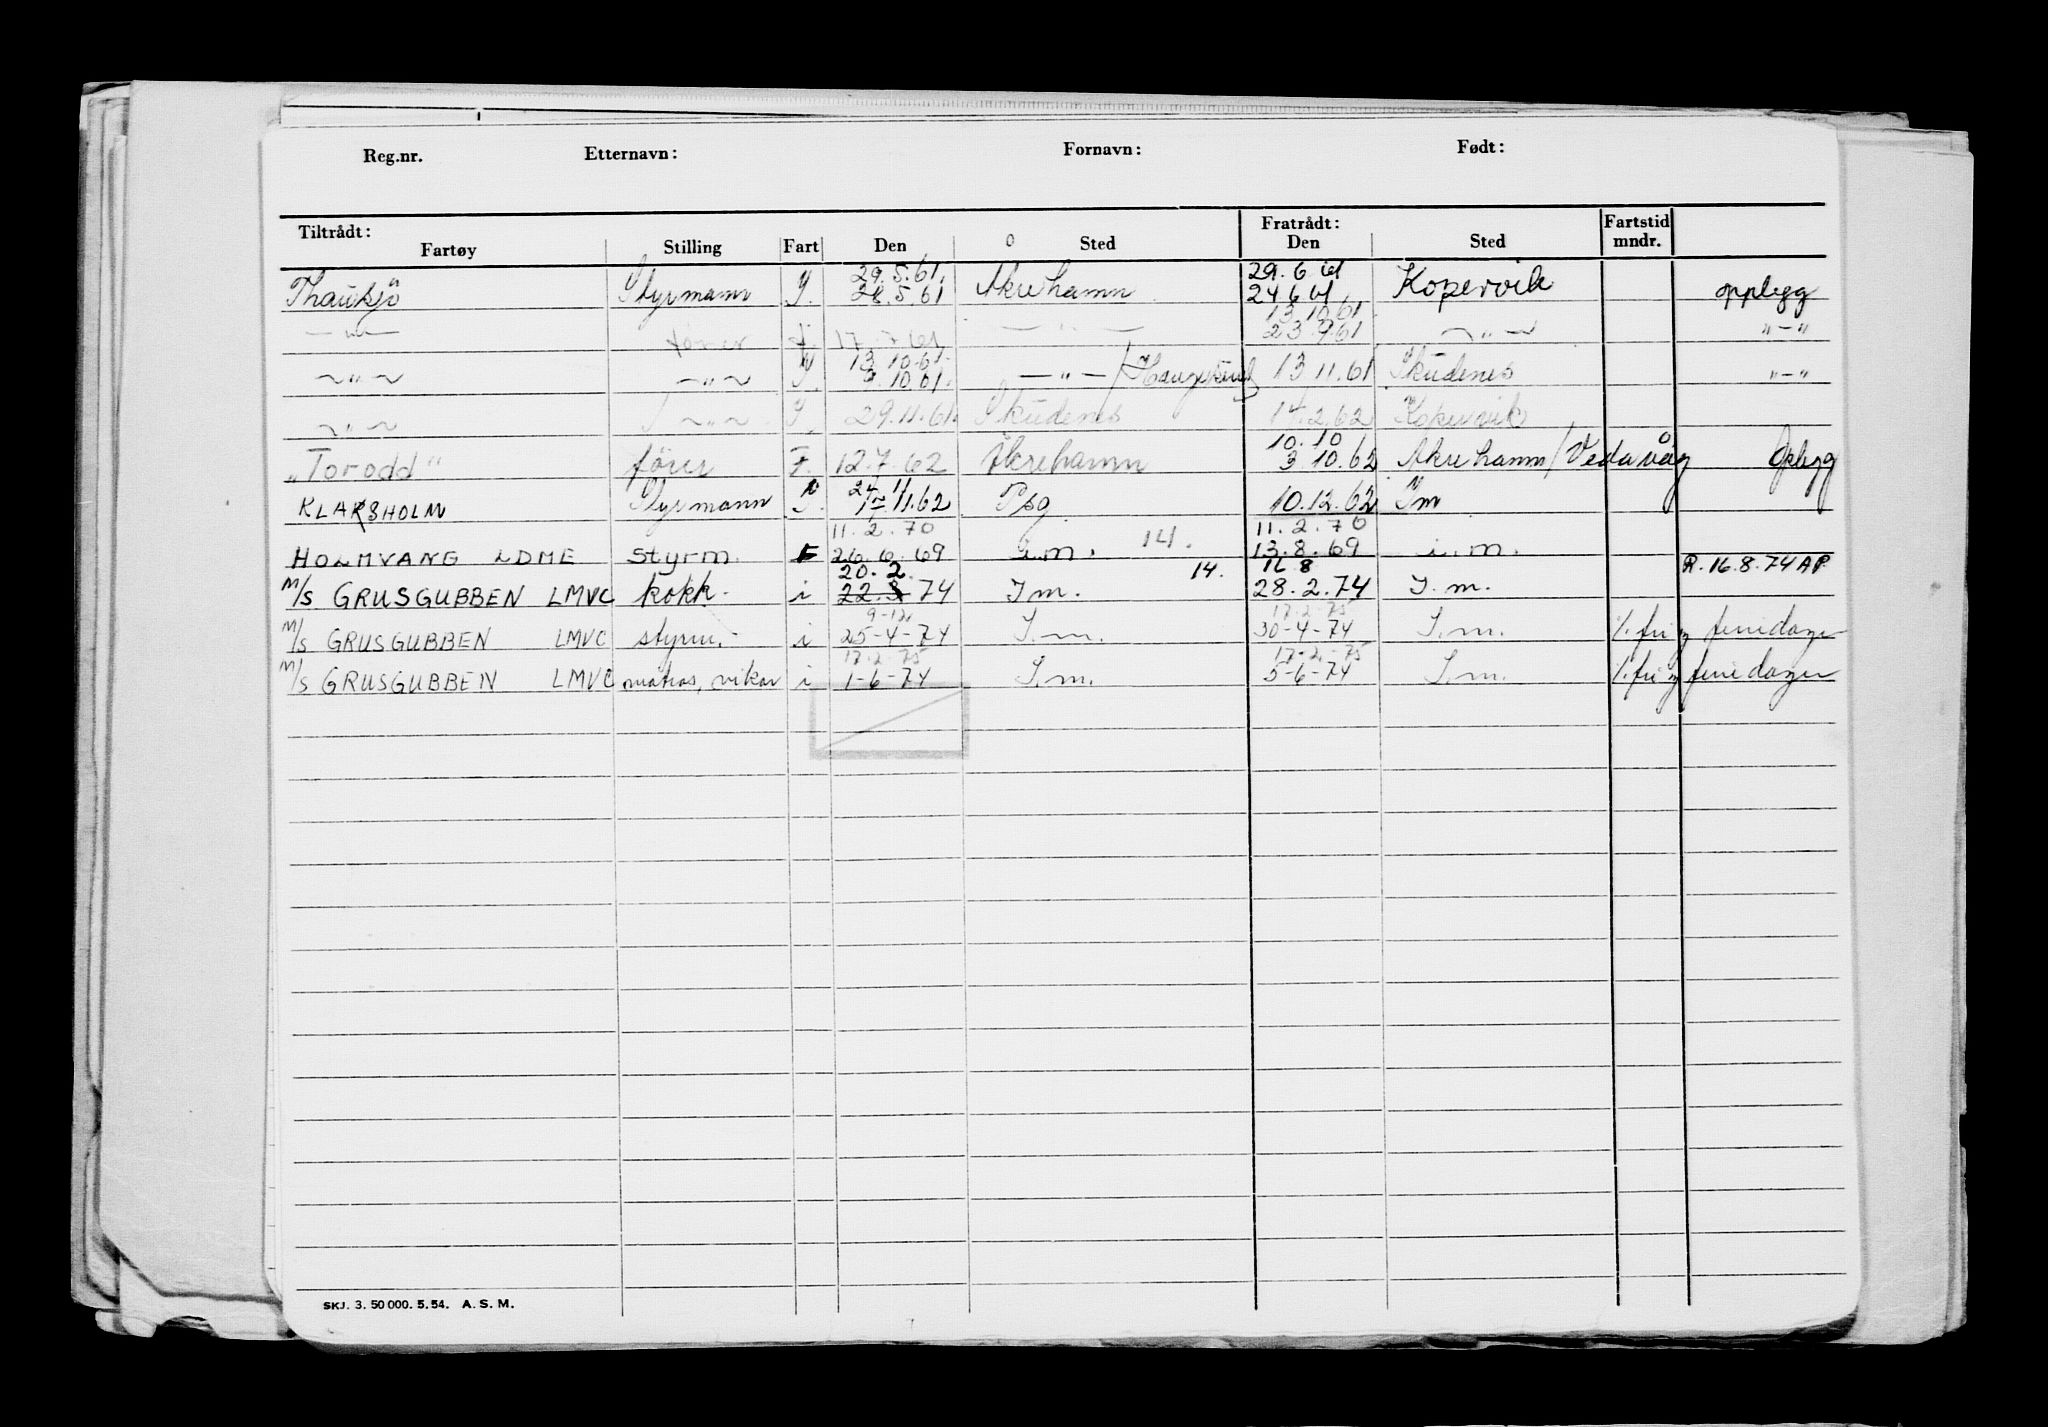 Reg.nr. Etternavn: Fornavn: Født:
Tiltrådt: Fratrådt: Fartstid
Fartøy Stilling Fart Den Sted Den Sted mndr.
29.5.61. 29.6 61
Styrmann 28.5 61 Åkrehamn 24 6 61 Kopervik opplegg
13.10.61
— " — fører 17.7.61 — " — 23.9.61 — " — " — "
13.10.61
— " — — " — 10.61. — " — / Haugesund 13 11.61 Skudenes " — "
— " — — " — 29.11.61. Skudenes 14.2.62 Kopervik
10.10
"Torodd" fører F. 12.7.62 Åkrehamn 3.10.62 Åkrehamn / Vedavåg Oplegg
24/11
KLARSHOLM Styrmann 11.62 Psg 10.12.62 Im
11.2.70 14. 11.2.70
HOLMVANG LDME styrm. F 26.6.69 i.m. 13.8.69 i.m.
20.2. 14. 16 8 R.16.8.74 AP
M/S GRUSGUBBEN LMVC kokk. i 22.3 74 I m. 28.2.74 I.m.
9-12. 17.2.75
M/S GRUSGUBBEN LMVC styrm. i 25-4-74 I.m. 30-4-74 I.m. %. fri og feriedager
17.2.75 17-2.-75
M/S GRUSGUBBEN LMVC matros, vikar i 1-6-74 I.m. 5-6-74 I.m. %. fri og feriedager
SKJ. 3. 50 000. 5. 54. A. S. M.